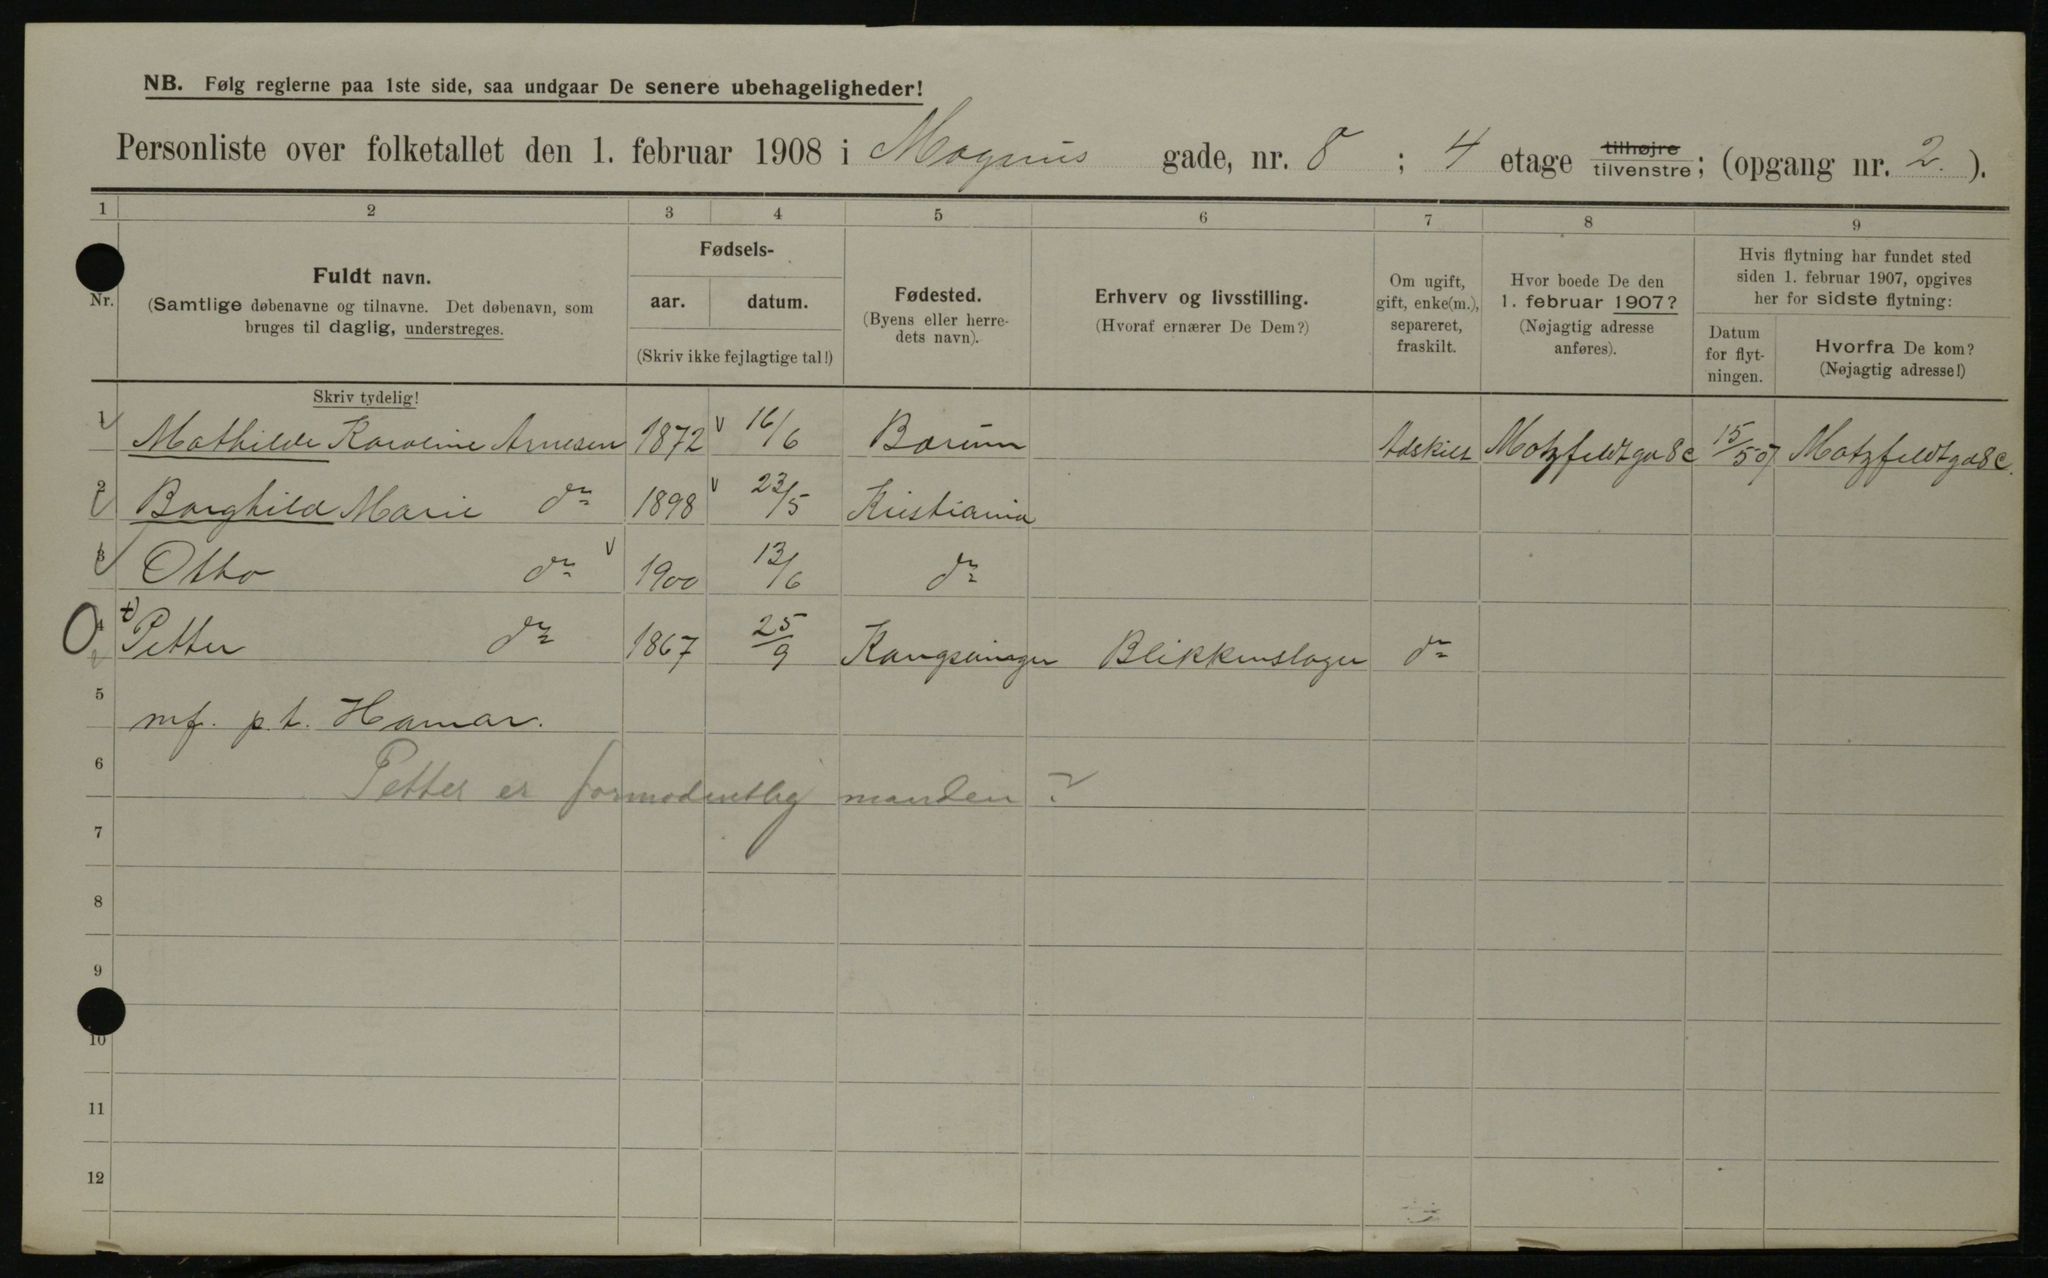 NB. Følg reglerne paa 1ste side, saa undgaar De senere ubehageligheder!
Personliste over folketallet den 1. februar 1908 i Magnus gade, nr. 8 ; 4 etage tilhøjre tilvenstre; (opgang nr. 2.).
1 2 3 4 5 6 7 8 9
Nr.
Fuldt navn.
(Samtlige døbenavne og tilnavne. Det døbenavn, som
bruges til daglig, understreges.
Fødsels-
aar. datum.
(Skriv ikke fejlagtige tal!)
Fødested.
(Byens eller herre-
dets navn).
Erhverv og livsstilling.
(Hvoraf ernærer De Dem?)
Om ugift,
gift, enke(m.),
separeret,
fraskilt.
Hvor boede De den
1. februar 1907?
(Nøjagtig adresse
anføres).
Hvis flytning har fundet sted
siden 1. februar 1907, opgives
her for sidste flytning:
Datum
for flyt-
ningen.
Hvorfra De kom?
(Nøjagtig adresse!)
Skriv tydelig!
1 Mathilde Karoline Arnesen 1872 16/6 Bærum Adskilt Motzfeldtga 8c 15/5 07 Motzfeldtga 8c.
2 Borghild Marie do 1898 23/5 Kristiania
3 Otto do 1900 13/6 do
4 Petter do 1867 25/9 Kongsvinger Blikkenslager do
5 mf. p.t. Hamar.
6 Petter er formodentlig manden?
7
8
9
10
11
12